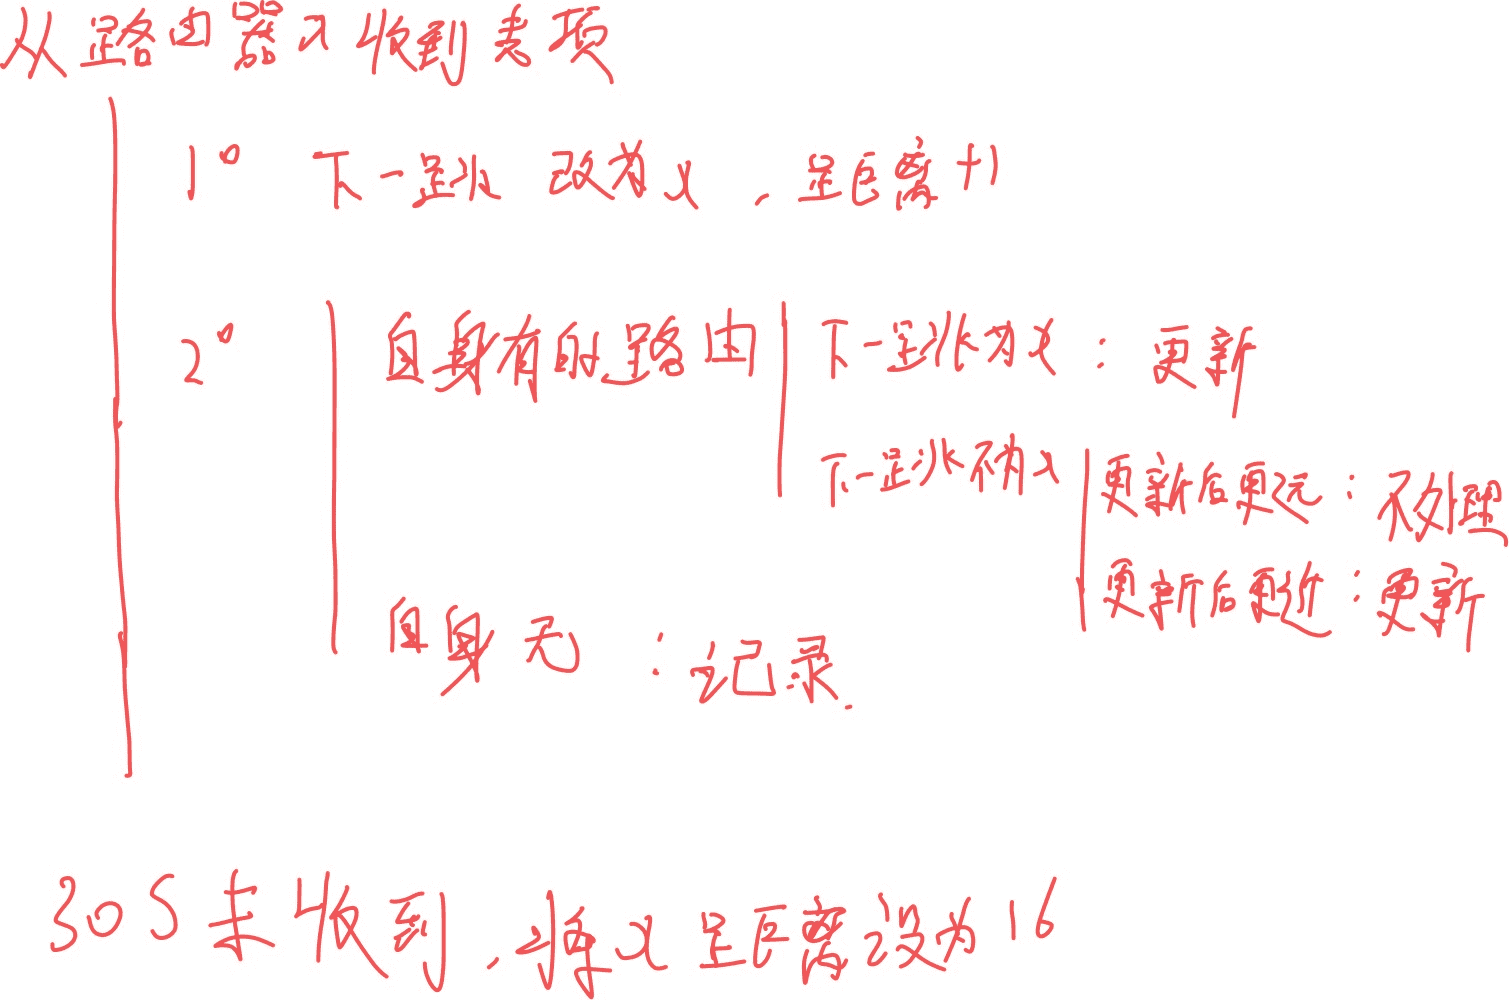 从路由器x收到表项
1° 下一跳 改为x，距离+1
2° 自身有的路由 下一跳为x：更新
下一跳不为x 更新后更远：不处理
更新后更近：更新
自身无：记录.
30S未收到，将x距离设为16